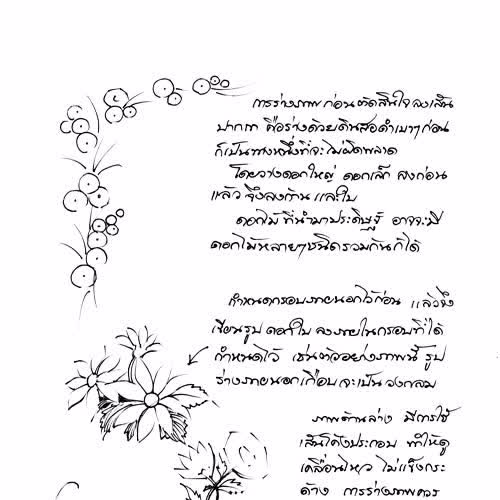 การร่างภาพ ก่อนตัดสินใจลงเส้น
ปากกา คือร่างด้วยดินสอดำเบาๆ ก่อน
ก็เป็นทางหนึ่งที่จะไม่ผิดพลาด
โดยวางดอกใหญ่ ดอกเล็ก ลงก่อน
แล้ว จึงลงก้าน และใบ
ดอกไม้ ที่นำมาประดิษฐ์ อาจจะมี
ดอกไม้หลายๆ ชนิดรวมกันก็ได้
กำหนดกรอบภายนอกไว้ก่อน แล้วจึง
เขียนรูป ดอก ใบ ลงภายในกรอบที่ได้
กำหนดไว้ เช่นตัวอย่างภาพนี้ รูป
ร่างภายนอกเกือบจะเป็น วงกลม
ภาพด้านล่าง มีการใช้
เส้นโค้งประกอบ ทำให้ดู
เคลื่อนไหว ไม่แข็งกระ
ด้าง การร่างภาพควร